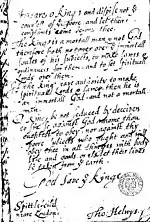 heare O King, and dispise not ye
counsell of ye poore, and let their
complaints come before thee.
The king is a mortall man, & not God
therefore hath no power over ye immortall
soules of his subiects, to make lawes &
ordinances for them, and to set spirituall
Lords over them.
If the king have authority to make
spirituall Lords & lawes, then he is
an immortall God, and not a mortall
man.
O King, be not seduced by deceivers
to sin so against God whome thou
oughtest to obey, nor against thy
poore subiects who ought and will
obey thee in all thinges with body
life and goods, or els let their lives
be taken from ye earth.
God save ye Kinge
Spittlefield
neare London.
Tho: Helwys.